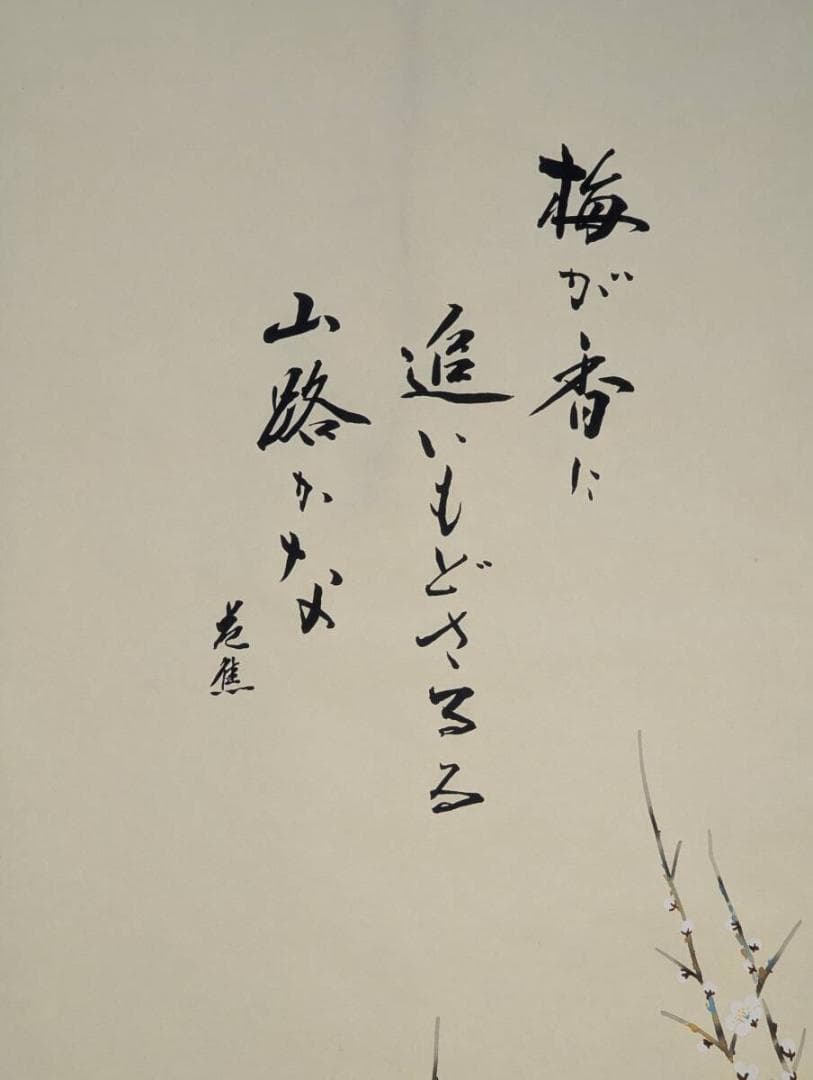 梅が香に
追いもどさるる
山路かな
芭蕉